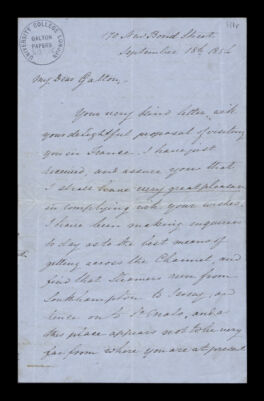 UNIVERSITY COLLEGE LONDON
GALTON
PAPERS
170 New Bond Street.
September 18th 1854
My Dear Galton,
Your very kind letter, with
your delightful proposal of visiting
you in France. I have just
received, and assure you that
I shall have very great pleasure
in complying with your wishes.
I have been making enquiries
to day as to the best means of
getting across the Channel, and
find that Steamers run from
Southampton to Jersey, and
thence on to St Malo, and as
this place appears not to be very
far from where you are at present